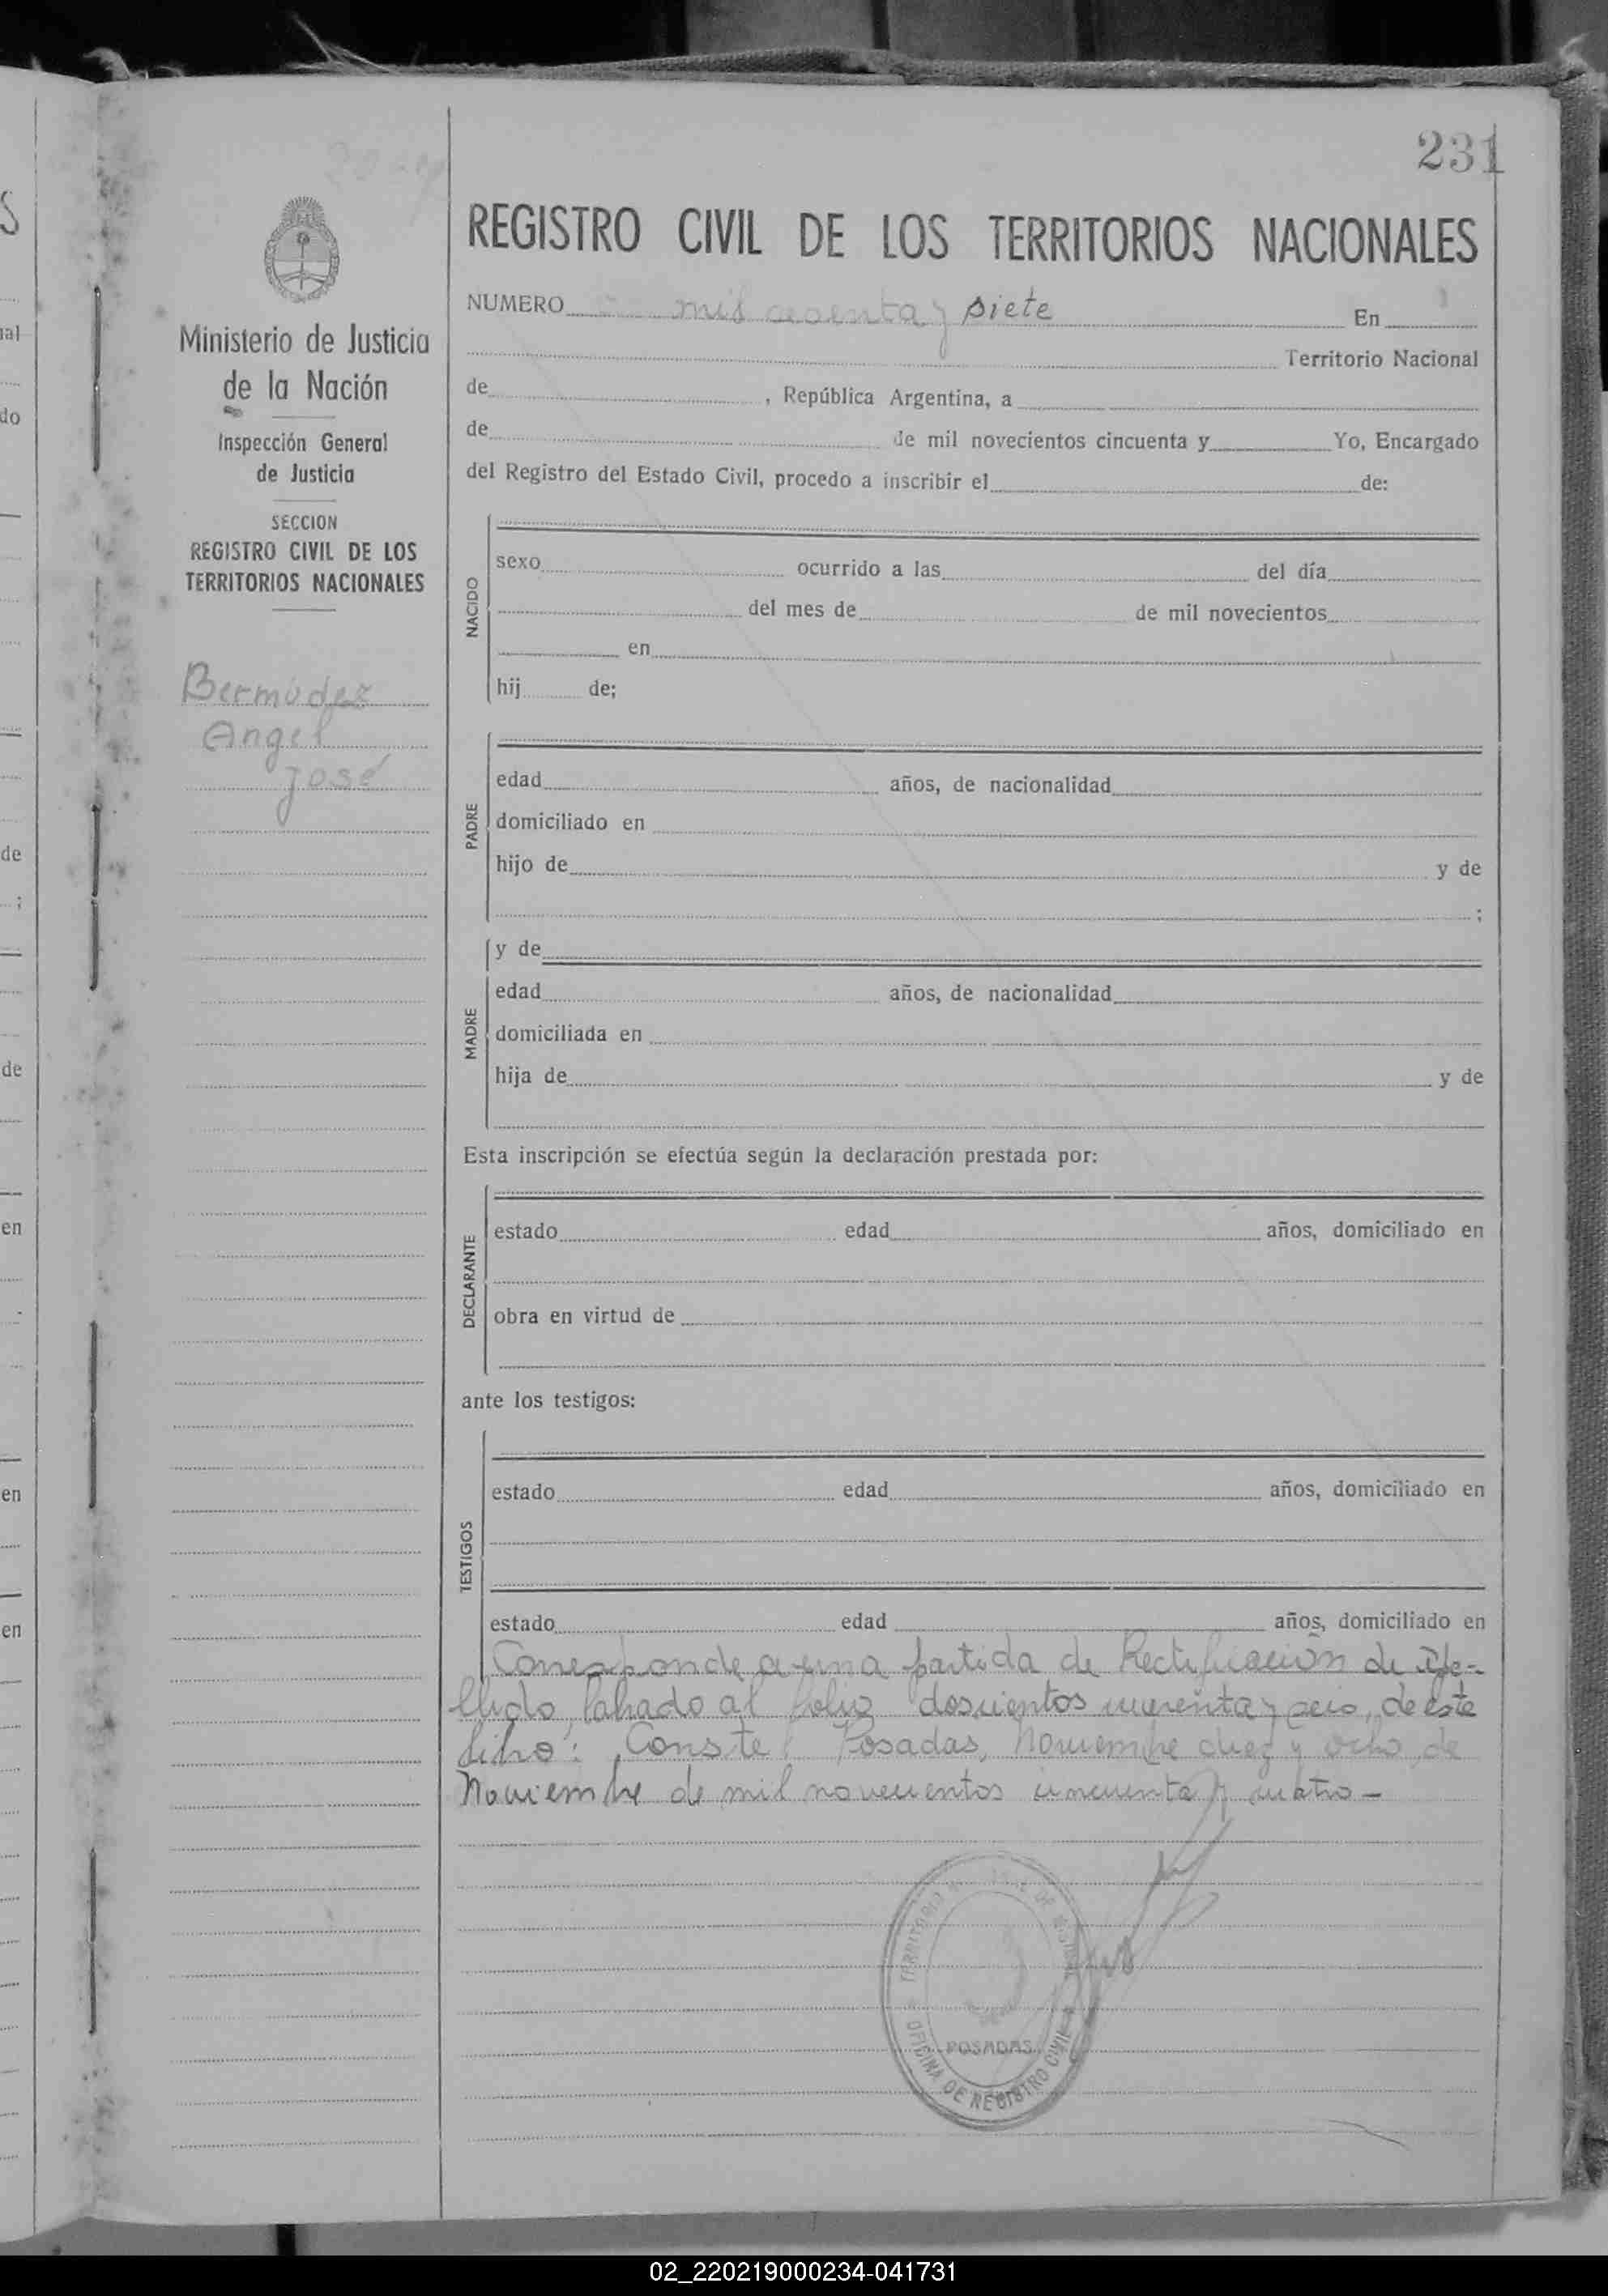 231
REGISTRO CIVIL DE LOS TERRITORIOS NACIONALES
NUMERO mil sesenta y siete En
Territorio Nacional
de , República Argentina, a
de de mil novecientos cincuenta y Yo, Encargado
del Registro del Estado Civil, procedo a inscribir el de:
NACIDO
sexo ocurrido a las del día
del mes de de mil novecientos
en
hij de;
PADRE
edad años, de nacionalidad
domiciliado en
hijo de y de
;
MADRE
y de
edad años, de nacionalidad
domiciliada en
hija de y de
Esta inscripción se efectúa según la declaración prestada por:
DECLARANTE
estado edad años, domiciliado en
obra en virtud de
ante los testigos:
TESTIGOS
estado edad años, domiciliado en
estado edad años, domiciliado en
Corresponde a una partida de Rectificación de Ape-
llido, labrado al folio doscientos y seis, de este
libro: Conste Posadas, Noviembre diez y ocho de
Noviembre de mil novecientos cincuenta y cuatro -
POSADAS
OFICINA DE REGISTRO CIVIL
Ministerio de Justicia
de la Nación
Inspección General
de Justicia
SECCION
REGISTRO CIVIL DE LOS
TERRITORIOS NACIONALES
Bermúdez
Angel
José
al
do
de
;
de
en
en
en
02_220219000234-041731